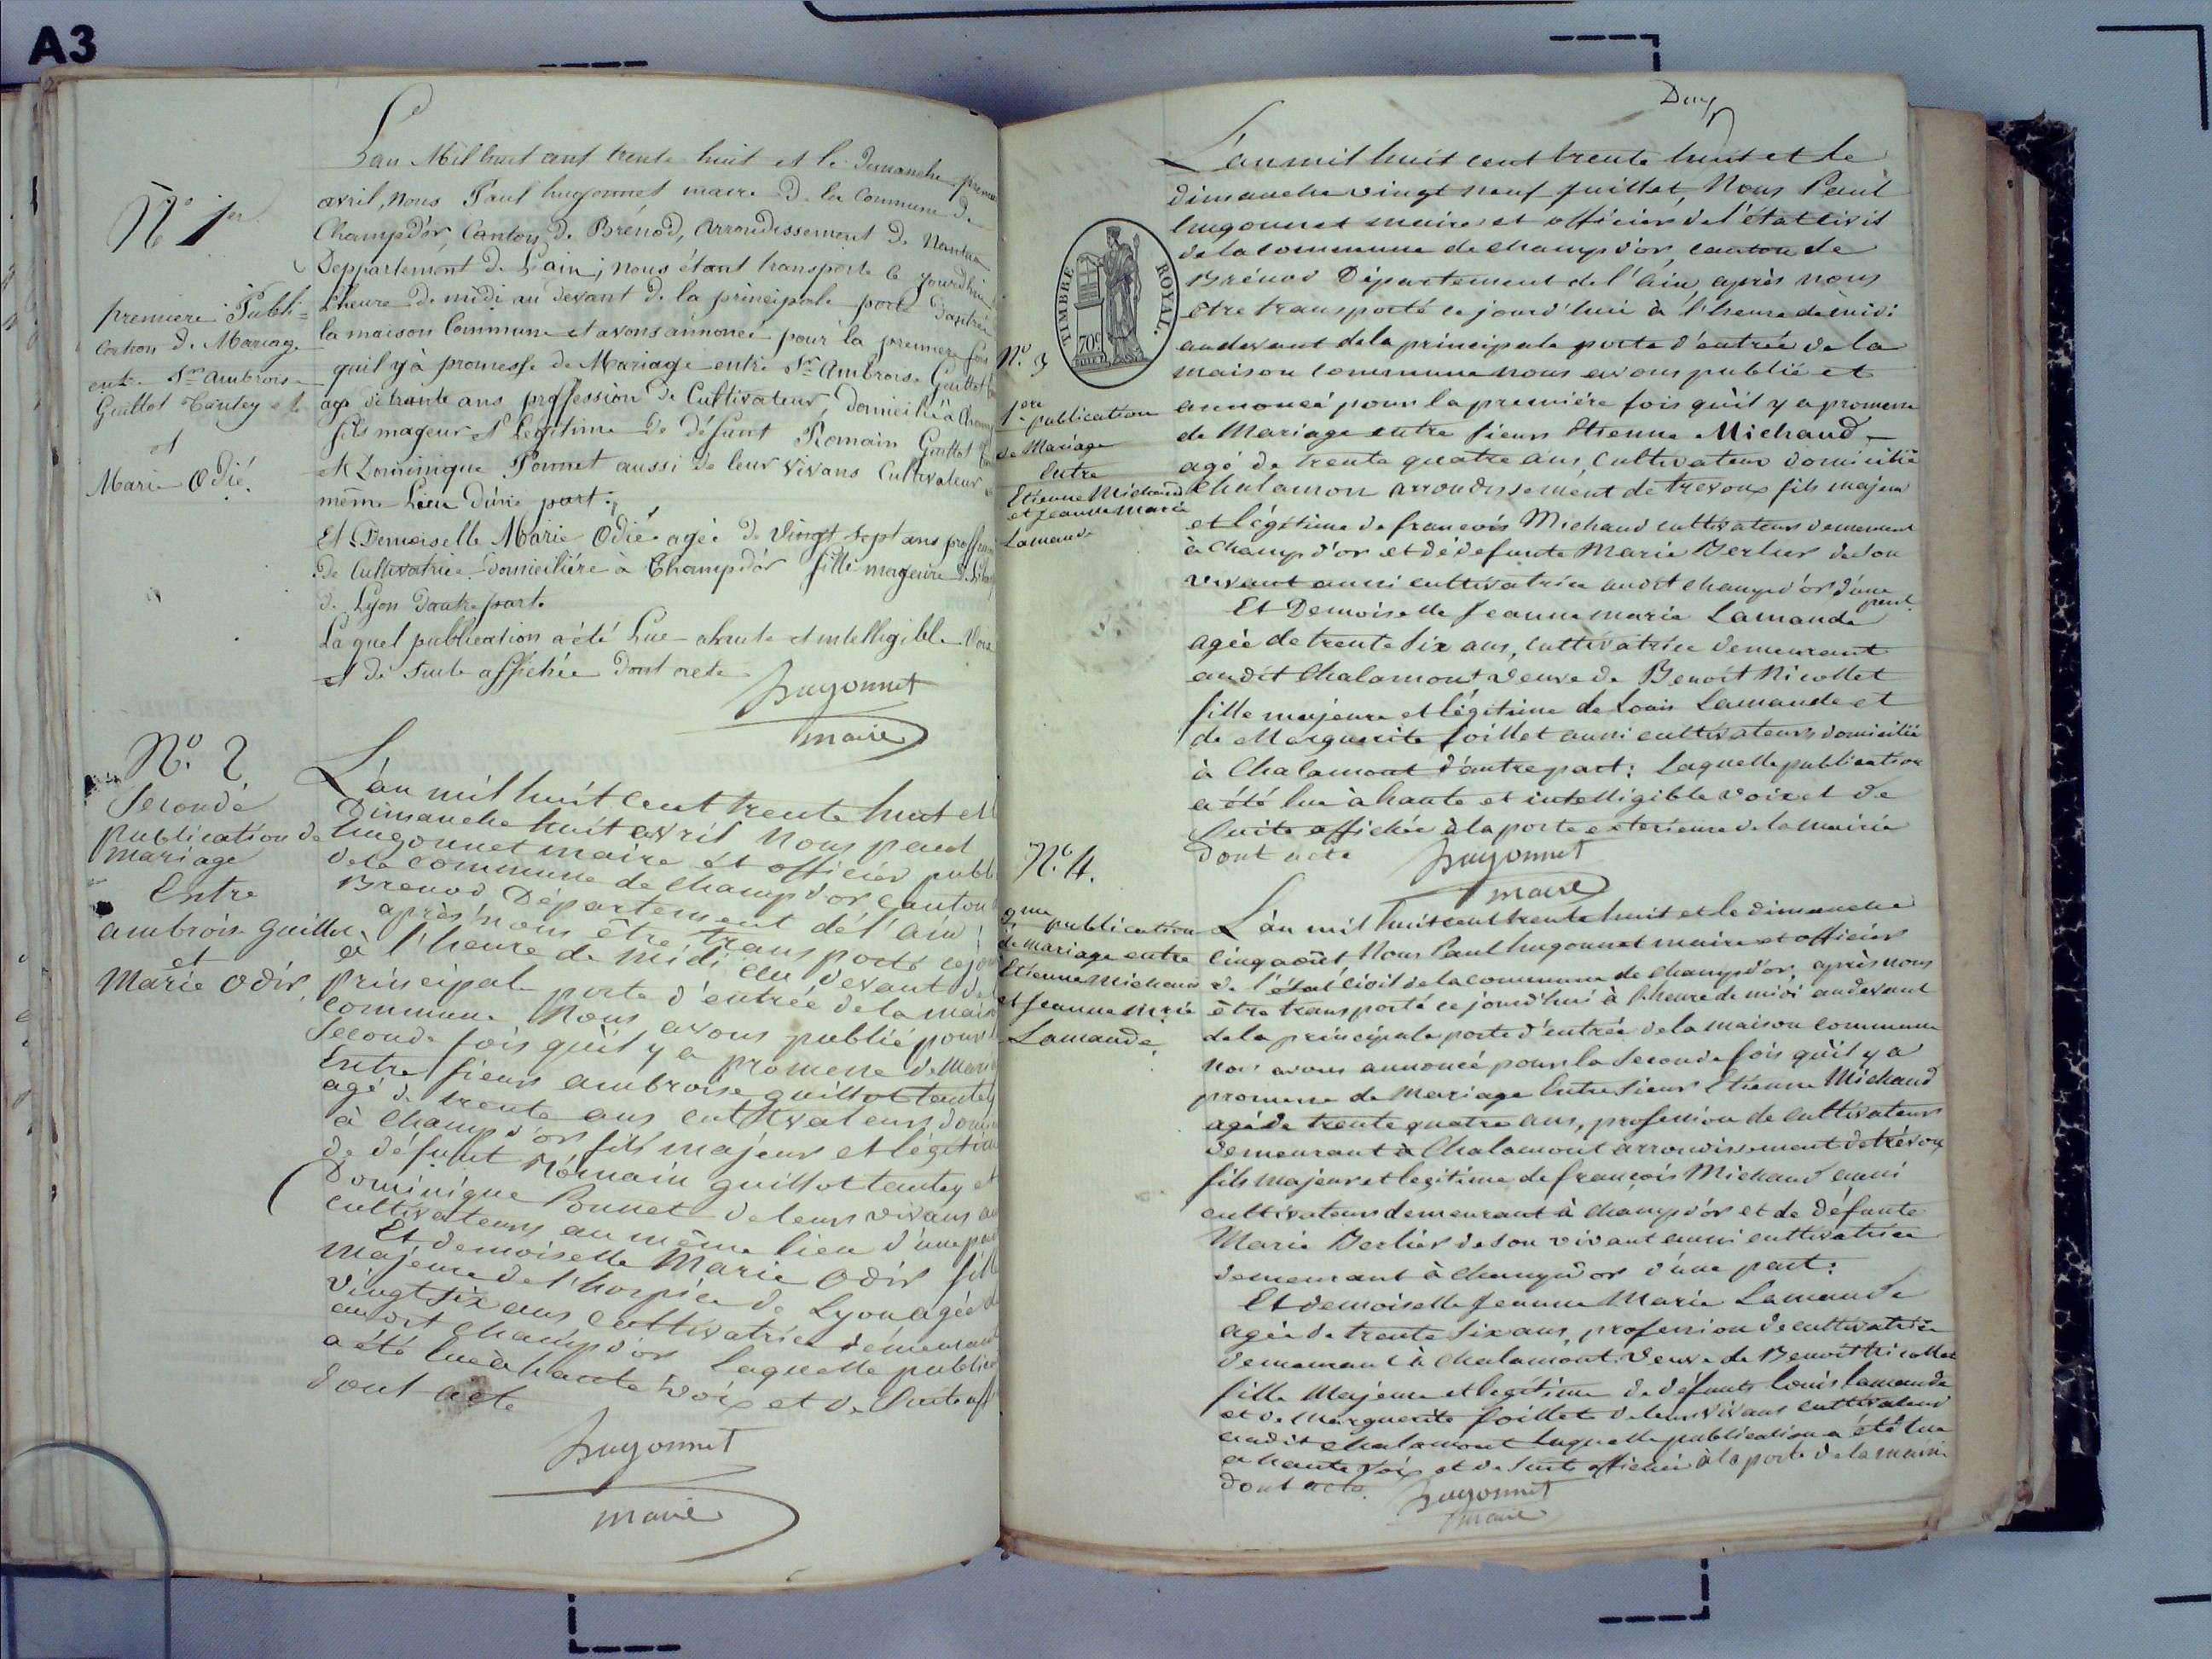 A3
N° 1er
premiere Publi=
cation de Mariage
entre Sr ambroise
Guillot Tantey
et
Marie Odié.
L'an Mil huit cent trente huit et le Dimanche premier
avril, nous Paul hugonnet maire De la Commune De
Champd'or, Canton de Brénod, arrondissement De Nantua
Deppartement De L'ain; nous étant transporté ce jourdhui
L'heure De midi au devant De la principale porte D'entrée
la maison Commune et avons annoncé pour la premiere fois
quil y à promesse de Mariage entre Sr Ambroise Guillot
agé de trante ans proffession De Cultivateur, Domicilié à Champ
fils mageur et Legitime De défunt Romain Guillot
et Dominique Ponnet aussi de leur vivans Cultivateur
même Lieu D'une part;
Et Demoiselle Marie Odié agée De Vingt sept ans proffession
De Cultivatrice domiciliére à Champd'or fille mageure
De Lyon Dautre part.
Laquel publication a été Lue ahaute et intelligible Voix
et De suite affichée Dont acte
hugonnet
maire
N°. 2
Seconde
Publication de
Mariage
Entre
ambroise guillot
et
Marie Odir
L'an mil huit cent trente huit et
Dimanche huit avril Nous paul
hugonnet maire et officier publ
de la commune de Champ d'or canton
Brenod Département de l'ain;
après nous être transporté ce jo
à l'heure de midi au devant de
principale porte d'entrée de la mais
commune Nous avons publié pour
Seconde fois qu'il y a promesse de Maria
Entre sieur ambroise guillot tantey
agé de trente ans cultivateur domi
à Champ d'or fils majeur et légitim
de défunt Romain guillot tantey et
Dominique Ponnet de leurs vivans au
cultivateurs au même lieu d'une par
Et demoiselle Marie Odir fill
Majeure de l'hospice de Lyon agée d
vingt six ans cultivatrice demeurant
audit champ d'or Laquelle public
a été lue à haute voix et de suite aff
Dont acte
hugonnet
maire
Duy
TIMBRE ROYAL.
70c
N°. 3
1ere publication
de Mariage
Entre
Etienne Michaud
et Jeanne Marie
Lamande
L'an mil huit cent trente huit et le
dimanche vingt neuf juillet, Nous Paul
hugonnet maire et officier de l'état civil
de la commune de champ d'or, canton de
Brénod Département de l'ain, après nous
être transporté ce jourd'hui à l'heure de midi
au devant de la principale porte d'entrée de la
maison commune nous avons publié et
annoncé pour la première fois qu'il y a promesse
de Mariage entre sieur Etienne Michaud
agé de trente quatre ans, cultivateur domicilié
Chalamon arrondissement de trevoux fils majeur
et légitime de françois Michaud cultivateur demeurant
à Champ d'or et de défunte Marie Berlier de son
vivant aussi cultivatrice audit champ d'or d'une
part.
Et Demoiselle Jeanne marie Lamande
agée de trente six ans, cultivatrice demeurant
audit Chalamont veuve de Benoît Nicollet
fille majeure et légitime de Louis Lamande et
de Marguerite foillet aussi cultivateurs domicilié
à Chalamont d'autre part: Laquelle publication
a été lue à haute et intelligible voix et de
Suite affichée à la porte exterieure de la mairie
Dont acte
hugonnet
maire
N°. 4.
2me publication
de mariage entre
Etienne Michaud
et Jeanne Marie
Lamande.
L'an mil huit cent trente huit et le dimanche
Cinq août Nous Paul hugonnet maire et officier
de l'état civil de la commune de champ d'or, après nous
être transporté ce jourd'hui à l'heure de midi au devant
de la principale porte d'entrée de la maison commune
Nous avons annoncé pour la Seconde fois qu'il y a
promesse de Mariage Entre Sieur Etienne Michaud
agé de trente quatre ans, profession de cultivateur
demeurant à Chalamont arrondissement de trévoux
fils majeur et legitime de françois Michaud aussi
cultivateur demeurant à Champ d'or et de défunte
Marie Berlier de son vivant aussi cultivatrice
demeurant à Champ d'or d'une part:
Et demoiselle Jeanne Marie Lamande
agée de trente Six ans, profession de cultivatrice
demeurant à Chalamont, Veuve de Benoit Nicollet
fille Majeure et legitime de défunts Louis Lamande
et de Marguerite foillet de leurs vivans cultivateur
audit chalamont laquelle publication a été lue
a haute voix et de suite affichée à la porte de la mairie
Dont acte.
hugonnet
maire